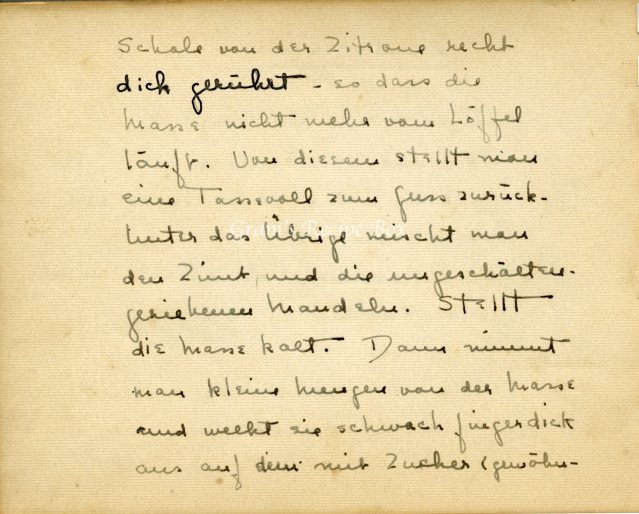 Schale von der Zitrone recht
dick gerührt - so dass die
Masse nicht mehr vom Löffel
läuft. Von diesem stellt man
eine Tassevoll zum Guss zurück.
Unter das Übrige mischt man
den Zimt, und die ungeschälten-
geriebenen Mandeln. Stellt
die Masse kalt. Dann nimmt
man kleine Mengen von der Masse
und welkt sie schwach fingerdick
aus auf dem mit Zucker (gewöhn-